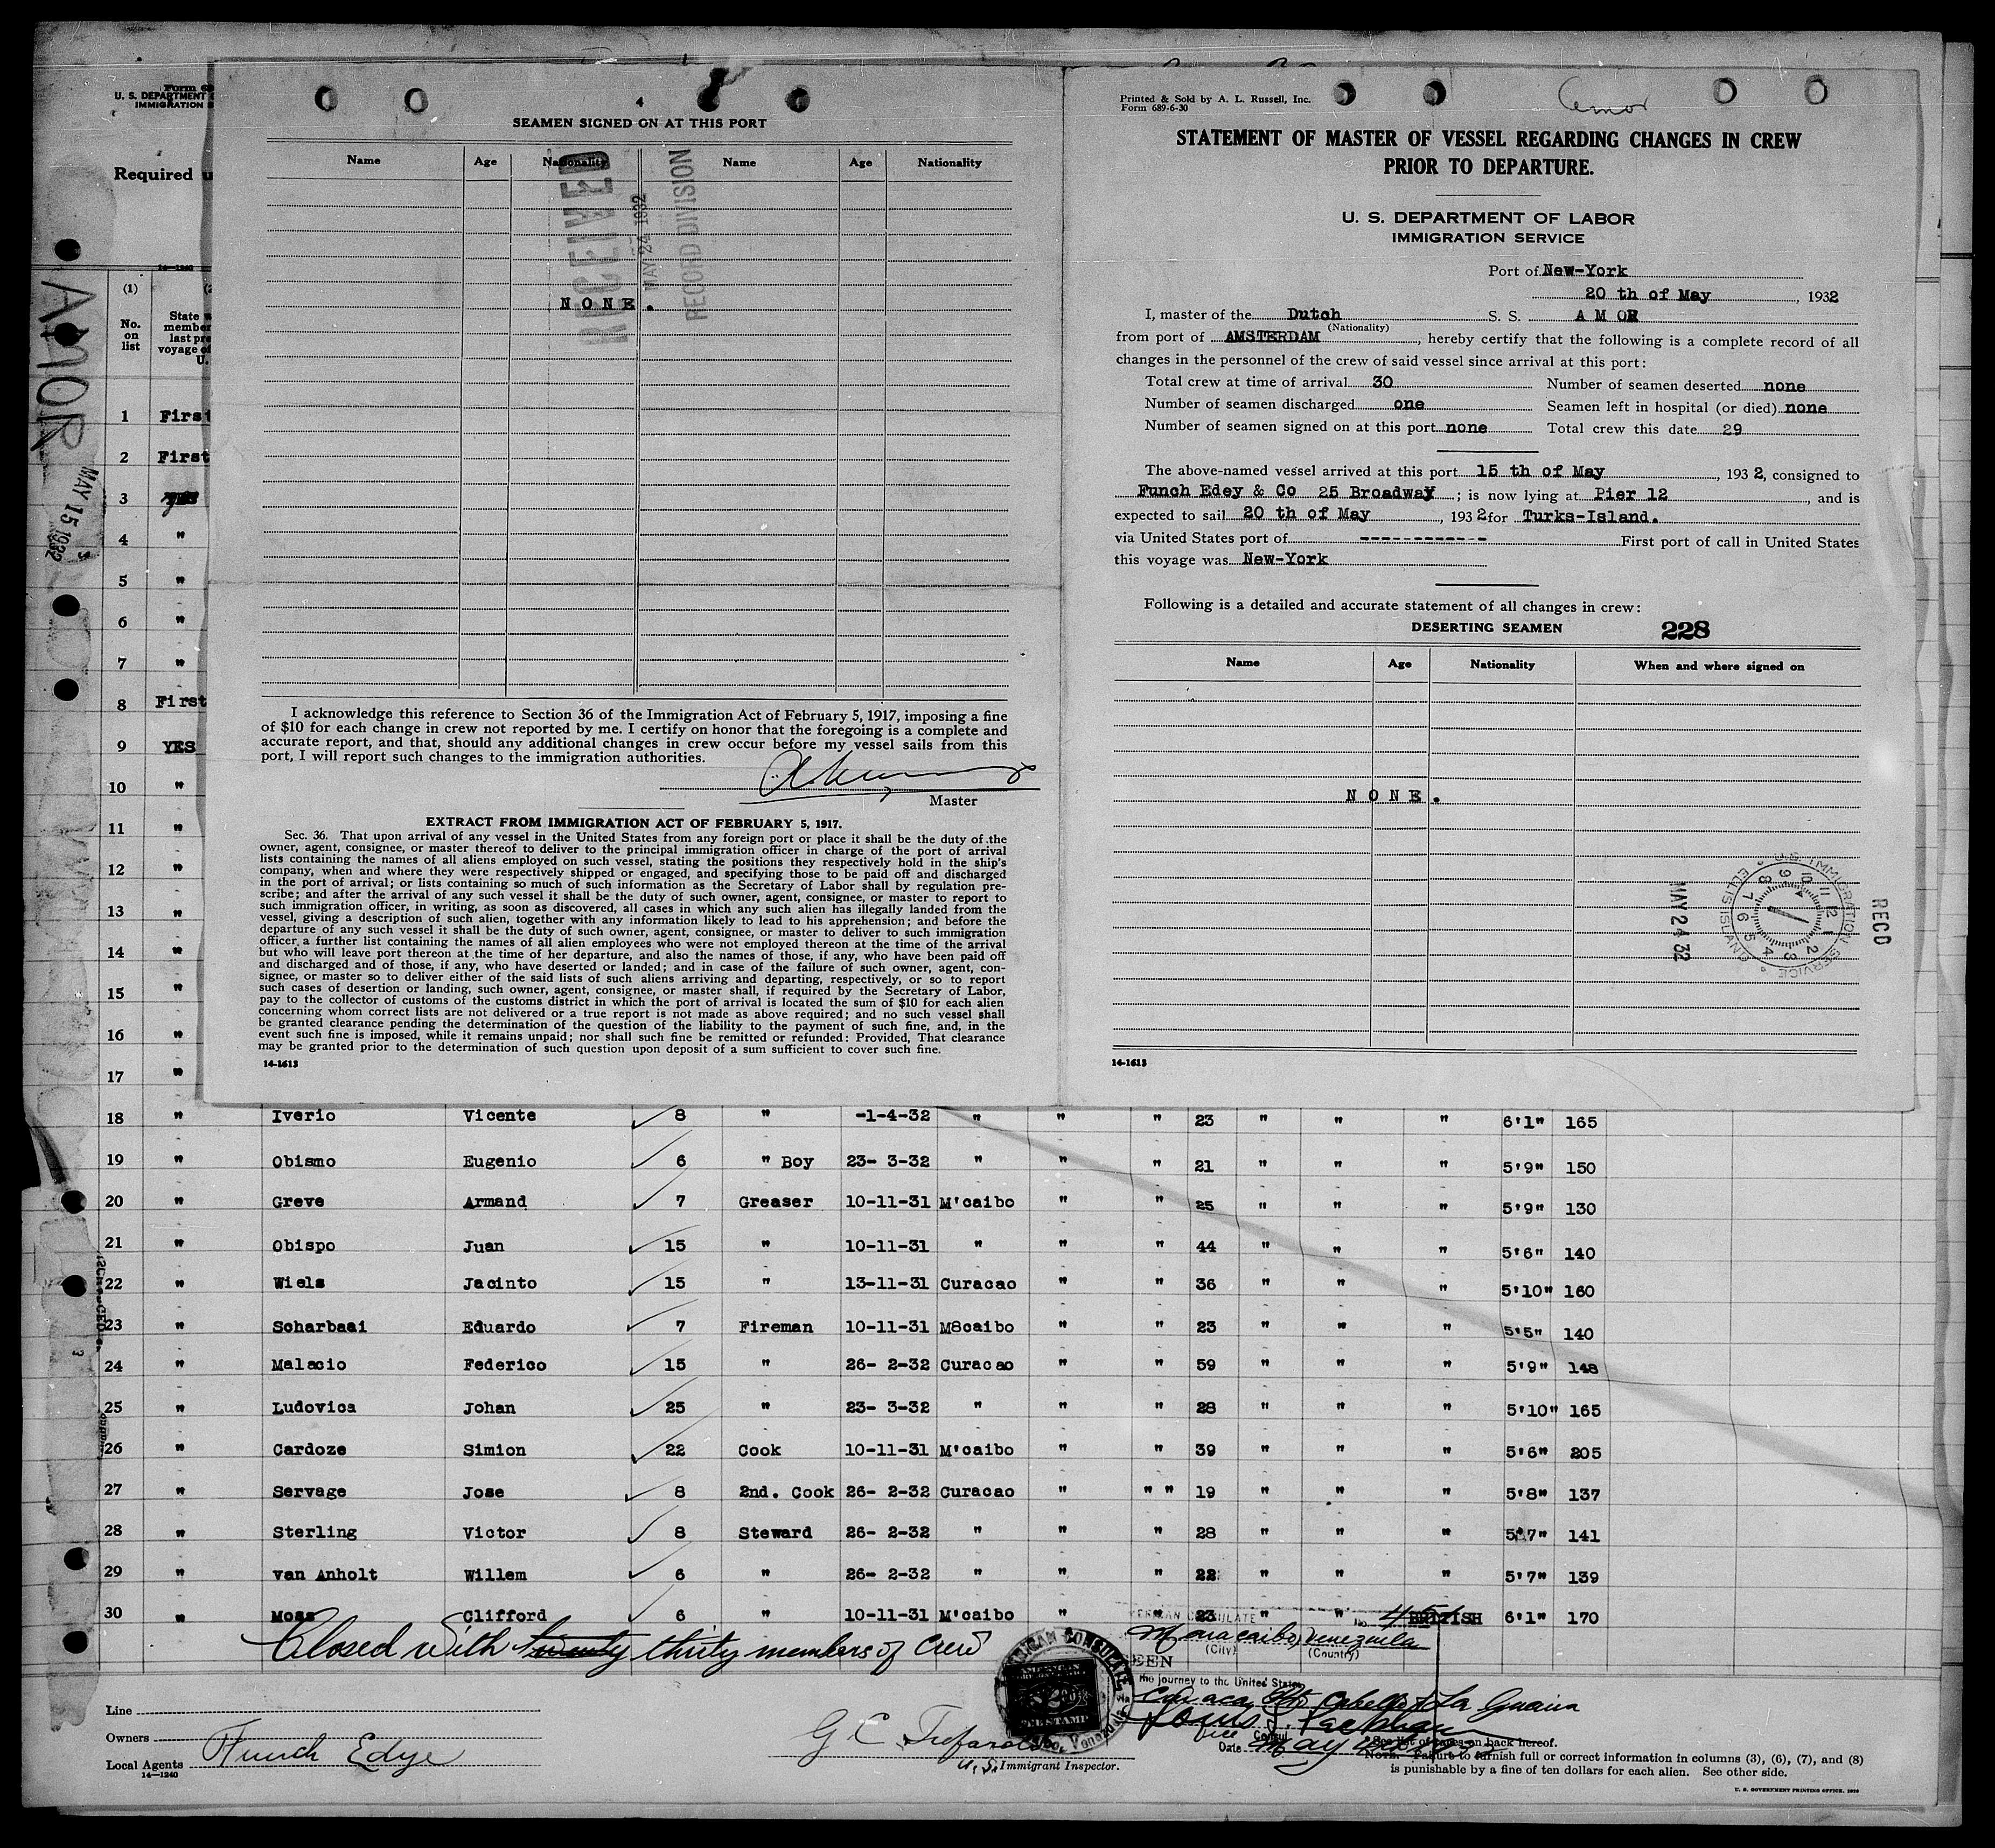 Form 68
U. S. DEPARTMENT
IMMIGRATION S
Required u
14—1240
AMOR
MAY 15 1932
(1)
No.
on
list
State w
member
last pre
voyage of
U.
1 First
2 First
3 yes
4 "
5 "
6 "
7 "
8 First
9 YES
10 "
11 "
12 "
13 "
14 "
15 "
16 "
17 "
4
SEAMEN SIGNED ON AT THIS PORT
Name Age Nationality Name Age Nationality
RECEIVED
MAY 24 1932
RECORD DIVISION
NONE.
I acknowledge this reference to Section 36 of the Immigration Act of February 5, 1917, imposing a fine
of $10 for each change in crew not reported by me. I certify on honor that the foregoing is a complete and
accurate report, and that, should any additional changes in crew occur before my vessel sails from this
port, I will report such changes to the immigration authorities.
Master
EXTRACT FROM IMMIGRATION ACT OF FEBRUARY 5, 1917.
Sec. 36. That upon arrival of any vessel in the United States from any foreign port or place it shall be the duty of the
owner, agent, consignee, or master thereof to deliver to the principal immigration officer in charge of the port of arrival
lists containing the names of all aliens employed on such vessel, stating the positions they respectively hold in the ship's
company, when and where they were respectively shipped or engaged, and specifying those to be paid off and discharged
in the port of arrival; or lists containing so much of such information as the Secretary of Labor shall by regulation pre-
scribe; and after the arrival of any such vessel it shall be the duty of such owner, agent, consignee, or master to report to
such immigration officer, in writing, as soon as discovered, all cases in which any such alien has illegally landed from the
vessel, giving a description of such alien, together with any information likely to lead to his apprehension; and before the
departure of any such vessel it shall be the duty of such owner, agent, consignee, or master to deliver to such immigration
officer a further list containing the names of all alien employees who were not employed thereon at the time of the arrival
but who will leave port thereon at the time of her departure, and also the names of those, if any, who have been paid off
and discharged and of those, if any, who have deserted or landed; and in case of the failure of such owner, agent, con-
signee, or master so to deliver either of the said lists of such aliens arriving and departing, respectively, or so to report
such cases of desertion or landing, such owner, agent, consignee, or master shall, if required by the Secretary of Labor,
pay to the collector of customs of the customs district in which the port of arrival is located the sum of $10 for each alien
concerning whom correct lists are not delivered or a true report is not made as above required; and no such vessel shall
be granted clearance pending the determination of the question of the liability to the payment of such fine, and, in the
event such fine is imposed, while it remains unpaid; nor shall such fine be remitted or refunded: Provided, That clearance
may be granted prior to the determination of such question upon deposit of a sum sufficient to cover such fine.
14-1613
Printed & Sold by A. L. Russell, Inc.
Form 689-6-30
Amor
STATEMENT OF MASTER OF VESSEL REGARDING CHANGES IN CREW
PRIOR TO DEPARTURE.
U. S. DEPARTMENT OF LABOR
IMMIGRATION SERVICE
Port of New-York
20 th of May, 1932
I, master of the Dutch S. S. AMOR
(Nationality)
from port of AMSTERDAM, hereby certify that the following is a complete record of all
changes in the personnel of the crew of said vessel since arrival at this port:
Total crew at time of arrival 30 Number of seamen deserted none
Number of seamen discharged one Seamen left in hospital (or died) none
Number of seamen signed on at this port none Total crew this date 29
The above-named vessel arrived at this port 15 th of May, 1932, consigned to
Funch Edey & Co 25 Broadway; is now lying at Pier 12, and is
expected to sail 20 th of May, 1932 for Turks-Island.
via United States port of ------------ First port of call in United States
this voyage was New-York
Following is a detailed and accurate statement of all changes in crew:
DESERTING SEAMEN 228
Name Age Nationality When and where signed on
NONE.
RECD
U.S. IMMIGRATION SERVICE
ELLIS ISLAND
12 1 2 3 4 5 6 7 8 9 10 11
MAY 24 32
14-1613
18 " Iverio Vicente 8 " -1-4-32 " " " 23 " " " 6'1" 165
19 " Obismo Eugenio 6 " Boy 23- 3-32 " " " 21 " " " 5'9" 150
20 " Greve Armand 7 Greaser 10-11-31 M'caibo " " 25 " " " 5'9" 130
21 " Obispo Juan 15 " 10-11-31 " " " 44 " " " 5'6" 140
22 " Wiels Jacinto 15 " 13-11-31 Curacao " " 36 " " " 5'10" 160
23 " Scharbaai Eduardo 7 Fireman 10-11-31 M8caibo " " 23 " " " 5'5" 140
24 " Malacio Federico 15 " 26- 2-32 Curacao " " 59 " " " 5'9" 148
25 " Ludovica Johan 25 " 23- 3-32 " " " 28 " " " 5'10" 165
26 " Cardoze Simion 22 Cook 10-11-31 M'caibo " " 39 " " " 5'6" 205
27 " Servage Jose 8 2nd. Cook 26- 2-32 Curacao " " " 19 " " " 5'8" 137
28 " Sterling Victor 8 Steward 26- 2-32 " " " 28 " " " 5'7" 141
29 " van Anholt Willem 6 " 26- 2-32 " " " 22 " " " 5'7" 139
30 " Moss Clifford 6 " 10-11-31 M'caibo " " 23 " " BRITISH 6'1" 170
Closed with twenty thirty members of crew
AMERICAN CONSULATE
No.
Maracaibo, Venezuela
(City) (Country)
SEEN
the journey to the United States
Curacao Pto Cabello & La Guaira
Vice Consul
Date May
Line
Owners
Local Agents Funch Edye
14—1240
G C
U. S. Immigrant Inspector.
See list of races on back hereof.
NOTE.—Failure to furnish full or correct information in columns (3), (6), (7), and (8)
is punishable by a fine of ten dollars for each alien. See other side.
U. S. GOVERNMENT PRINTING OFFICE